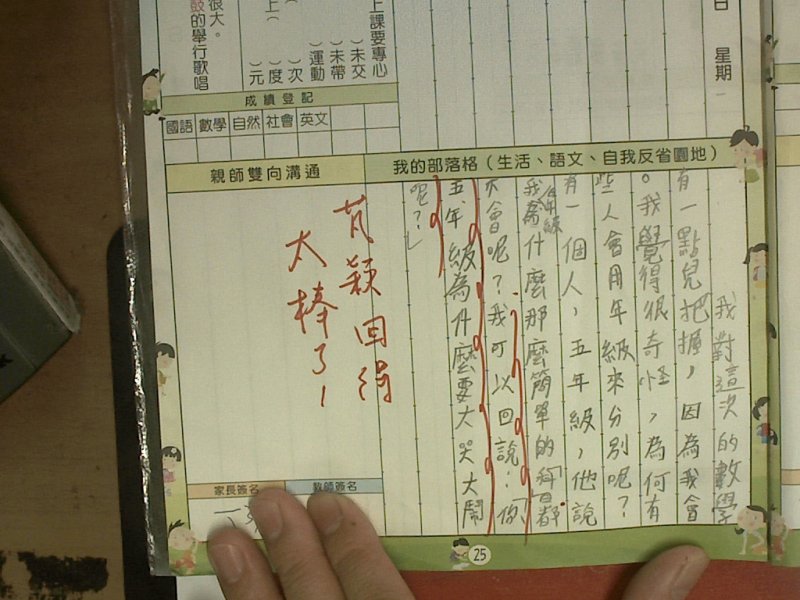 日 星期一
上課要專心
)未交
)未帶
)運動
)次
)度
)元
很大。
鼓的舉行歌唱
成績登記
國語 數學 自然 社會 英文
親師雙向溝通
我的部落格(生活、語文、自我反省園地)
我對這次的數學
有一點兒把握,因為我會
。我覺得很奇怪,為何有
些人會用年級來分別呢?
有一個人,五年級,他說
我為什麼那麼簡單的都
不會呢?我可以回說:「你
五年級為什麼要大哭大鬧
呢?」
回得
太棒了!
家長簽名
教師簽名
25